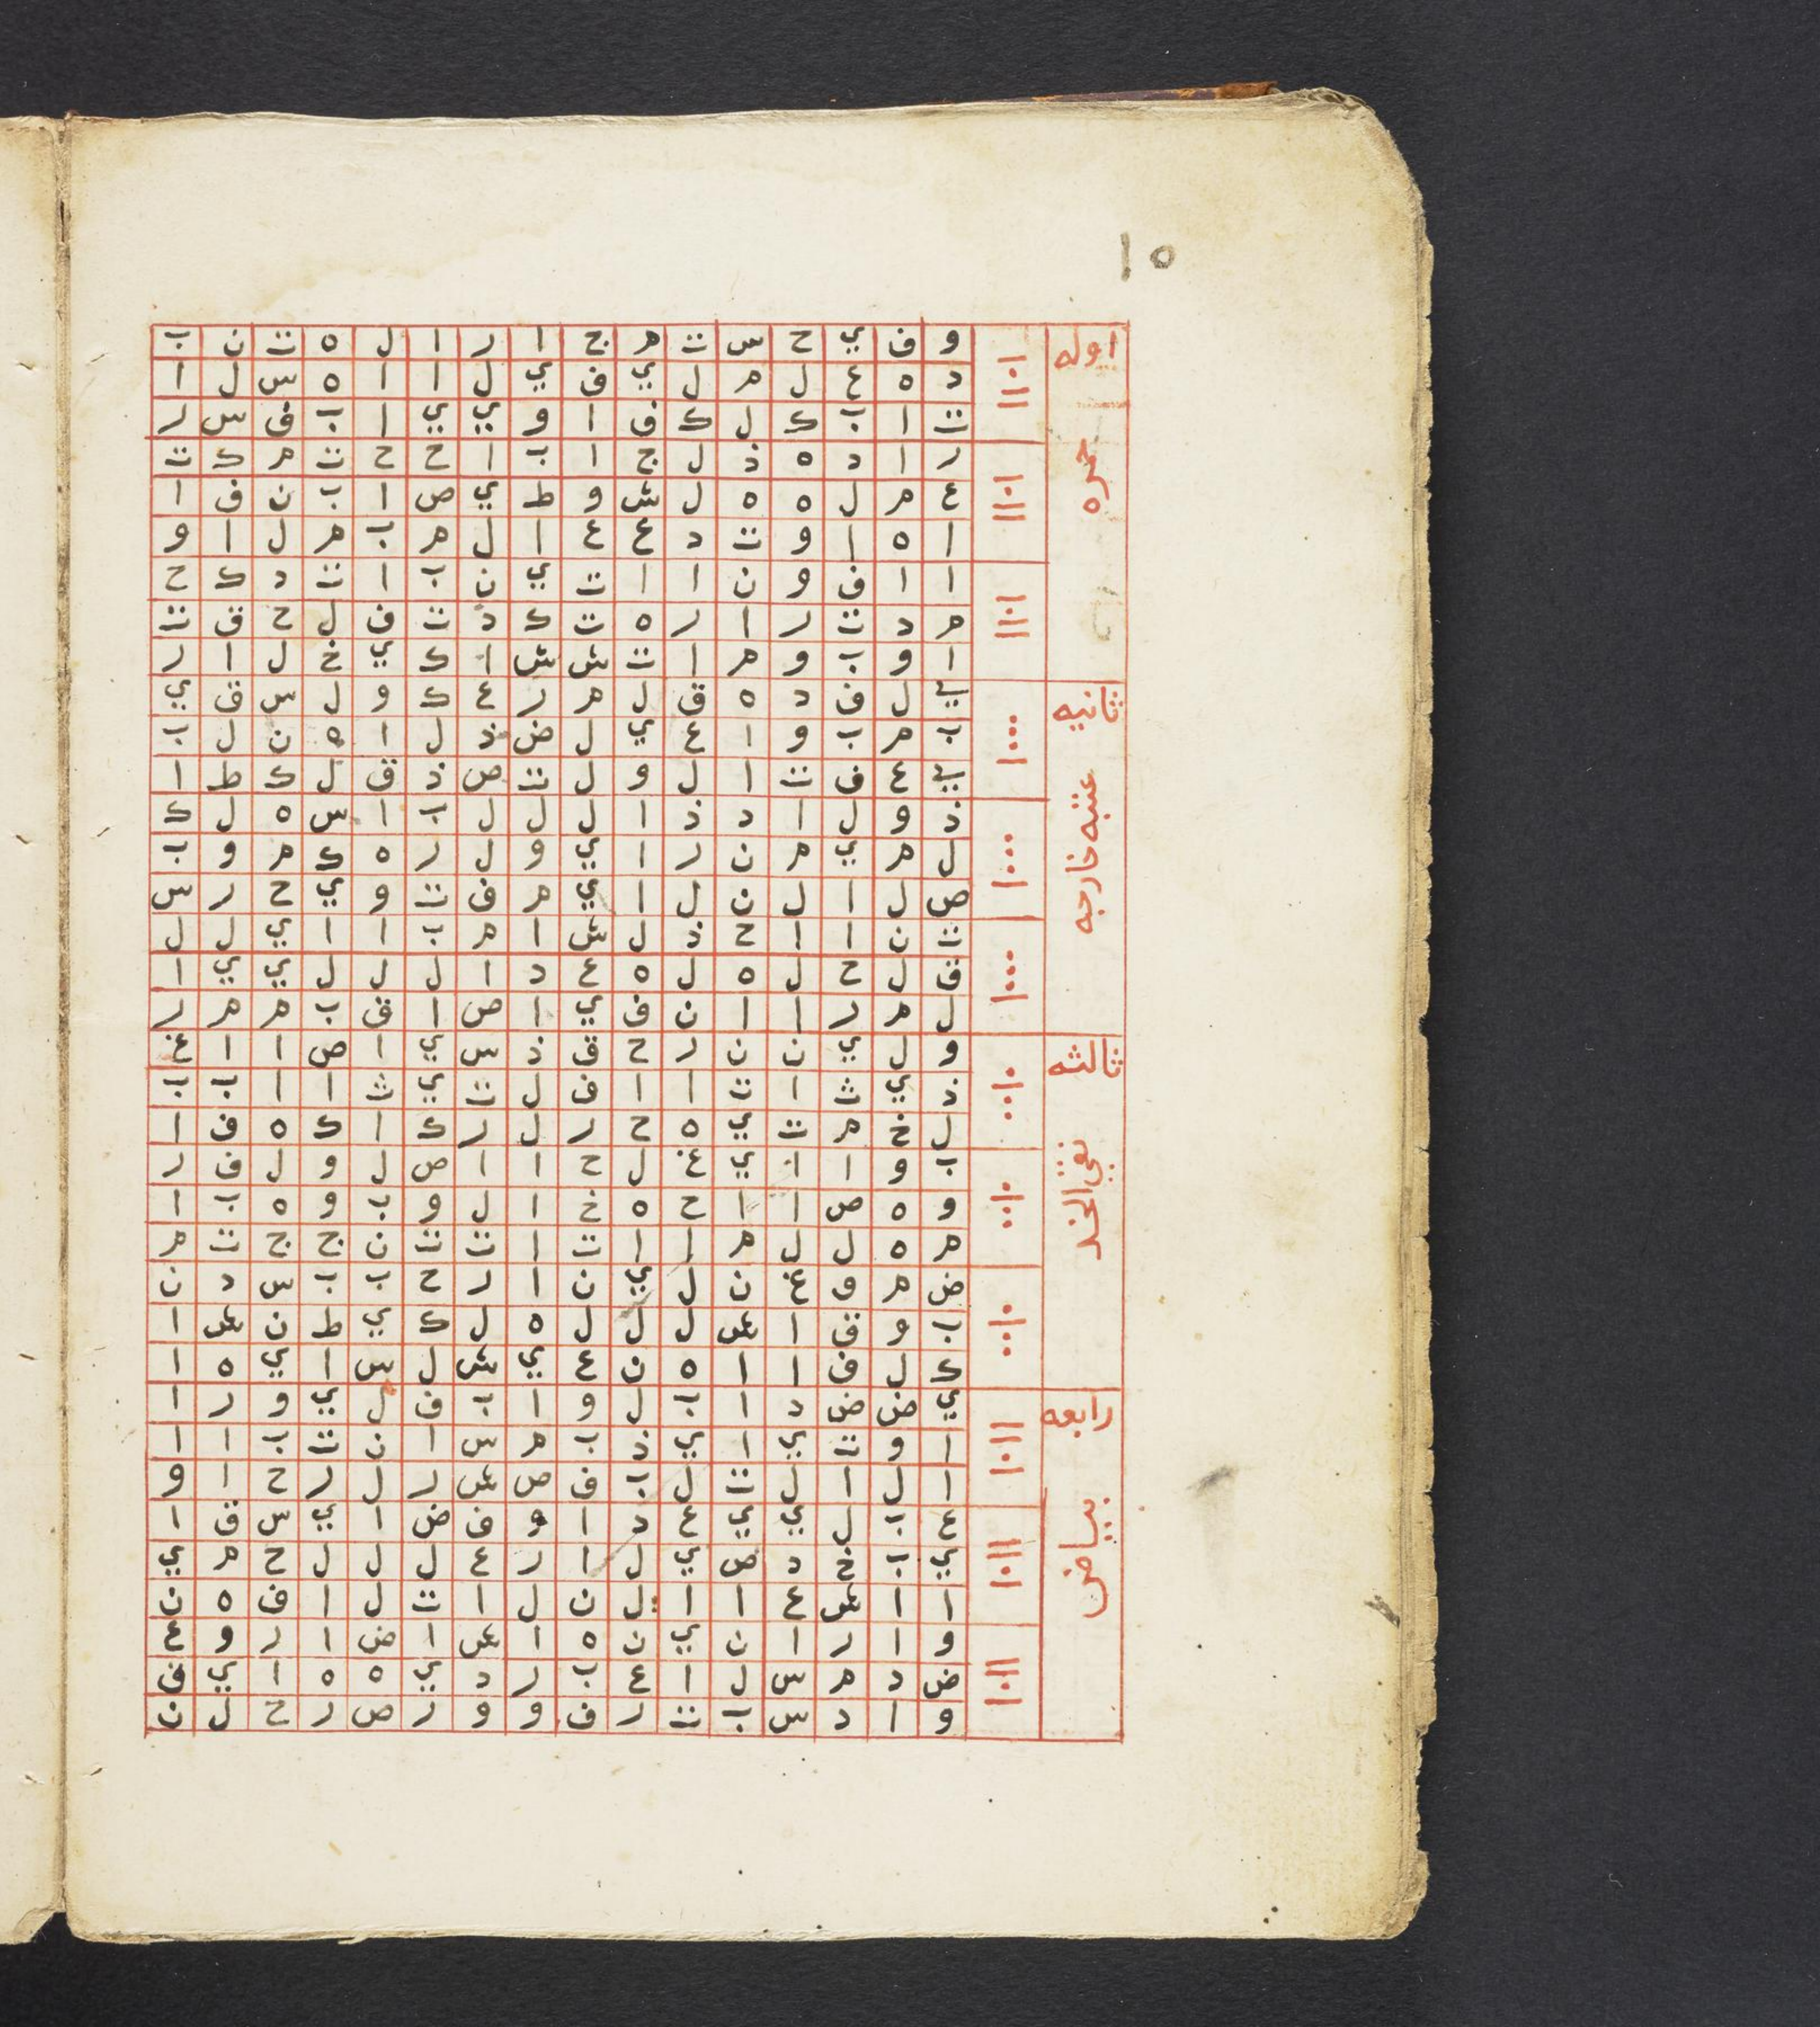 ١٥
اوله حمره
و ف ي ح س ت م ج ا ر ا ل ه ت ن ب
د ه ع ل م ل ي ف ي ل ا ا ه س ل ا
ت ا ب ك ل ك ف ا و ي ي ا ب ف س ر
ر ا د ه ذ ل ج ا ب ا ح ح ت م ك ت
ع م ل ه ه ل ش و ط ي ص ا ب ن ف ا
ا ه ا و ت د ع ع ا ل م ب م ل ا و
ا ا ف و ن ا ا ت ي ن ب ا ت د ك ح
م د ت ر ا ر ه ت ك د ت ف ل ح ق ت
ا و ب و م ا ت ش ش ا ك ي خ ل ا ر
ثانيه عتبه خارجه
ل ف د ه ق ل م ر ع ك و ل س ق ي
ب م ب و ا ع ي ل ض ذ ل ا ه ن ل ب
ع ف ت ا ل و ل ت ص ذ ق ل ك ط ا
ذ و ل ا د ذ ا ل ل ل ب ا س ه ل ك
ل م ي م ن ر ا ي و ل ر ه ك م و ب
ص ل ا ل ن ل ا ي م ف ت و ي ح ر س
ت ن ا ا ح ذ ل ش ا م ب ا ا ي ل ل
ق ل ح ل ه ل ه ع د ا ل ل ل ي ي ا
ل م ر ا ا ن ف ي ا ص ا ق ب م م ر
ثالثه نقي الخد
و ل ي ن ن ر ح ق ذ س ي ا ص ا ا غ
ذ ي ث ا ت ا ا ف ل ت ي ث ا ا ب ب
ل خ م ت ي ه ح ر ل ر ك ا ك ه ف ا
ب و ا ا ي غ ل ح ا ا ص ل و ل ف ر
و ه ص ا ا ح ه خ ا ل و ب و ه ب ا
م ه ل ل م ا ا ت ا ت ت ن ج ج ت م
ض م و غ ن ل ي ن ا ر ح ب ب س د ن
ب و ق ا ش ل ل ل ه ل ك ي ط ن ش ا
ك ل ف ا ا ه ن ع ي ش ل س ا ي ه ا
رابعه بياض
ي ض ض د ا ب ل و ا ب ف ل ي و ر ا
ا و ت ي ا ي ذ ب م س ا ن ت ب ا ا
ا ل ا ل ت ل ب ف ص ش ر ل ر ح ا و
ع ب ل ي ي ع د ا و ف ض ا ي س ق ا
ي ب خ د ص ي ل ا ر ع ل ل ل ح م ي
ا ا ش ع ا ا ل ن ل ا ت ل ا ف ه ن
و ا ر ا ن ي ن ه ا ش ا ض ا ر و ع
ض د م س ل ا ع ب ر د ي ه ه ا ي ف
و ا د س ب ت ر ف و و ر ص ر ح ل ن